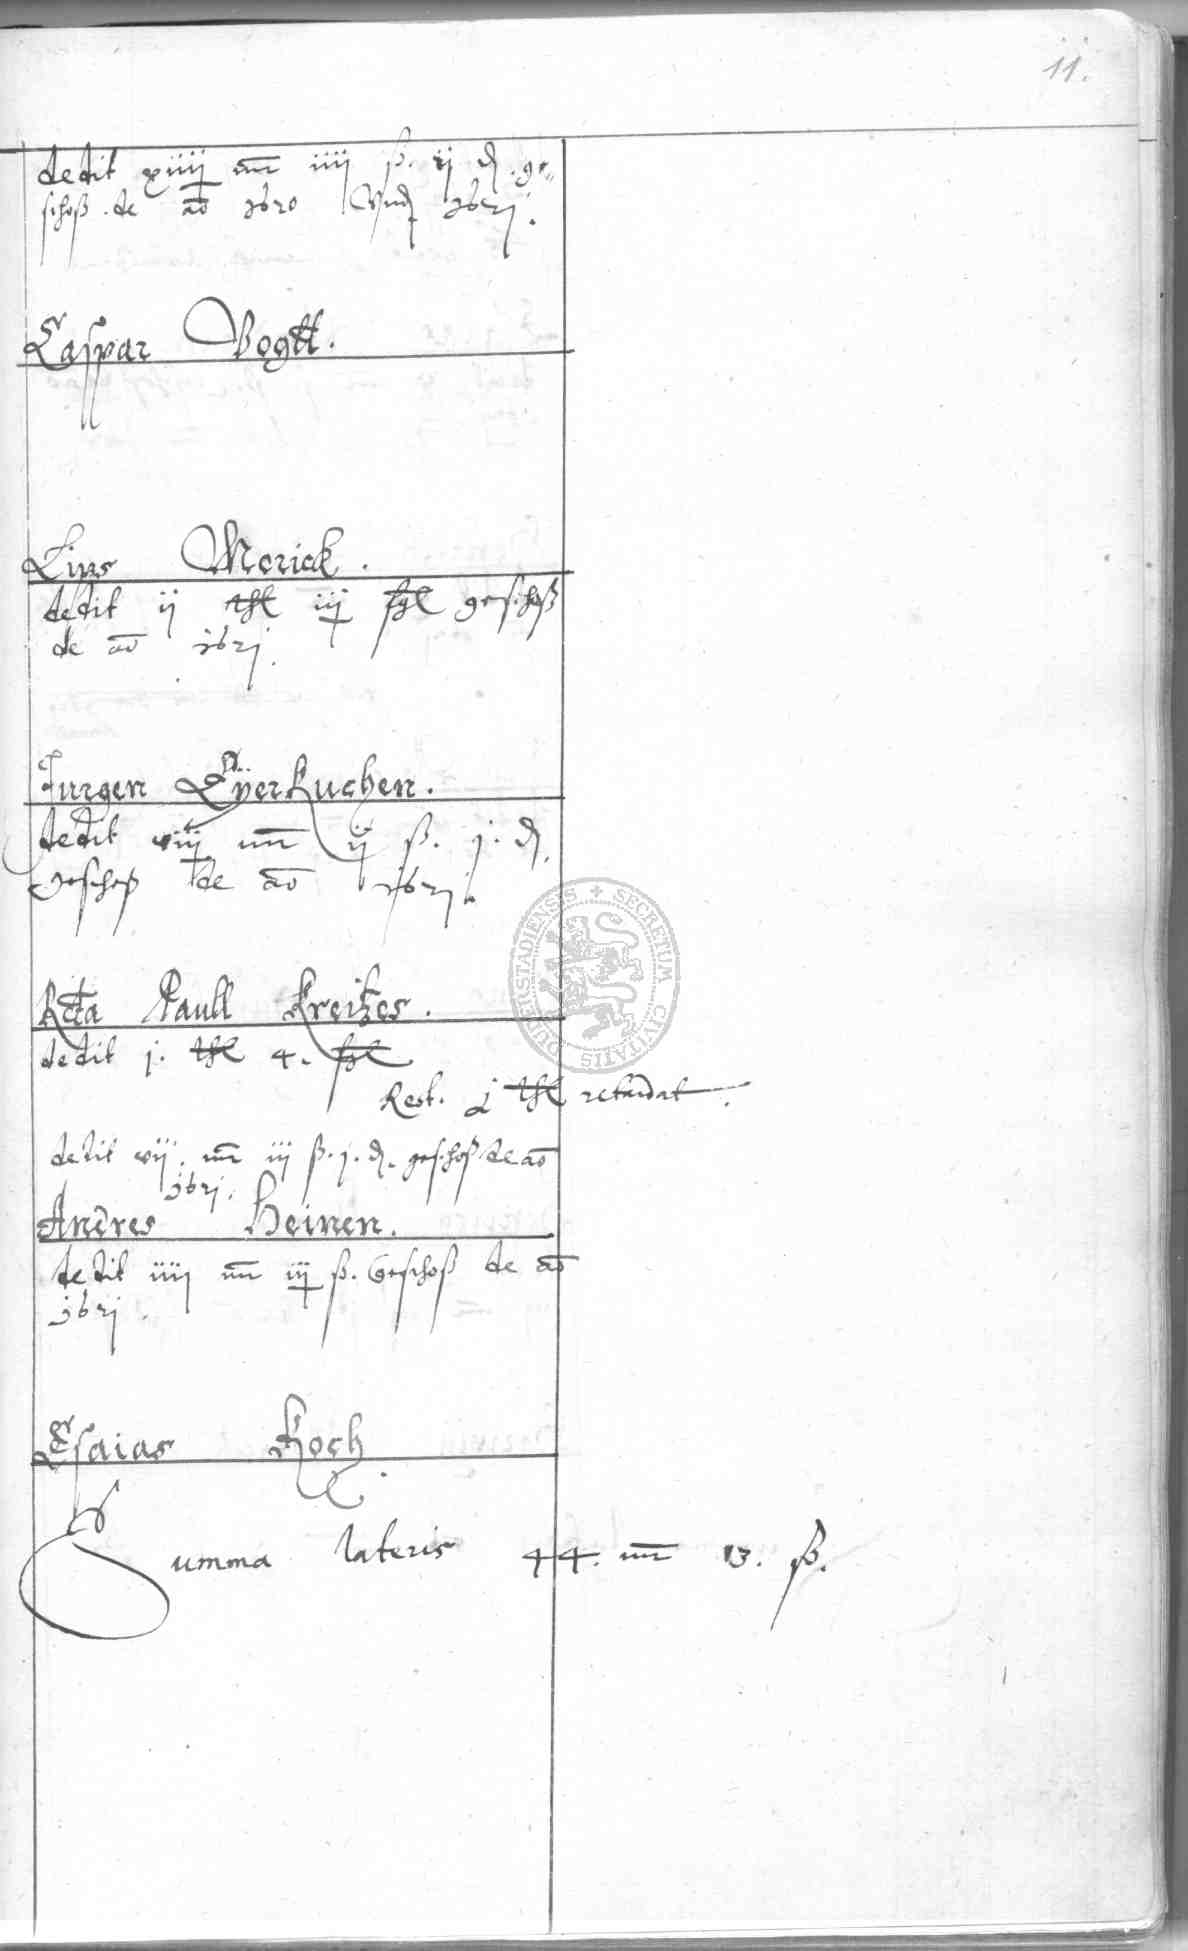 11.
dedit xiiij mr iiij ß. ij d. ge-
schoß. de ao 1620 Vnd 1621.
Caspar Vogtt.
Lips Merick.
dedit ij thl iij sgl geschoß
de ao 1621.
Jurgen Eÿerkuchen.
dedit viij mr ij ß. j. d.
Geschoß de ao 1621.
Rcta Paull Kreitzes.
dedit j. thl 4. sgl
Rest. j thl retardat.
dedit vij. mr iij ß. j. d. geschoß de ao
1621.
Andres Heinen.
dedit iiij mr iij ß. Geschoß de ao
1621.
Esaias Koch.
Summa lateris 44. mr 13. ß.
SECRETUM CIVITATIS DUDERSTADIENSIS